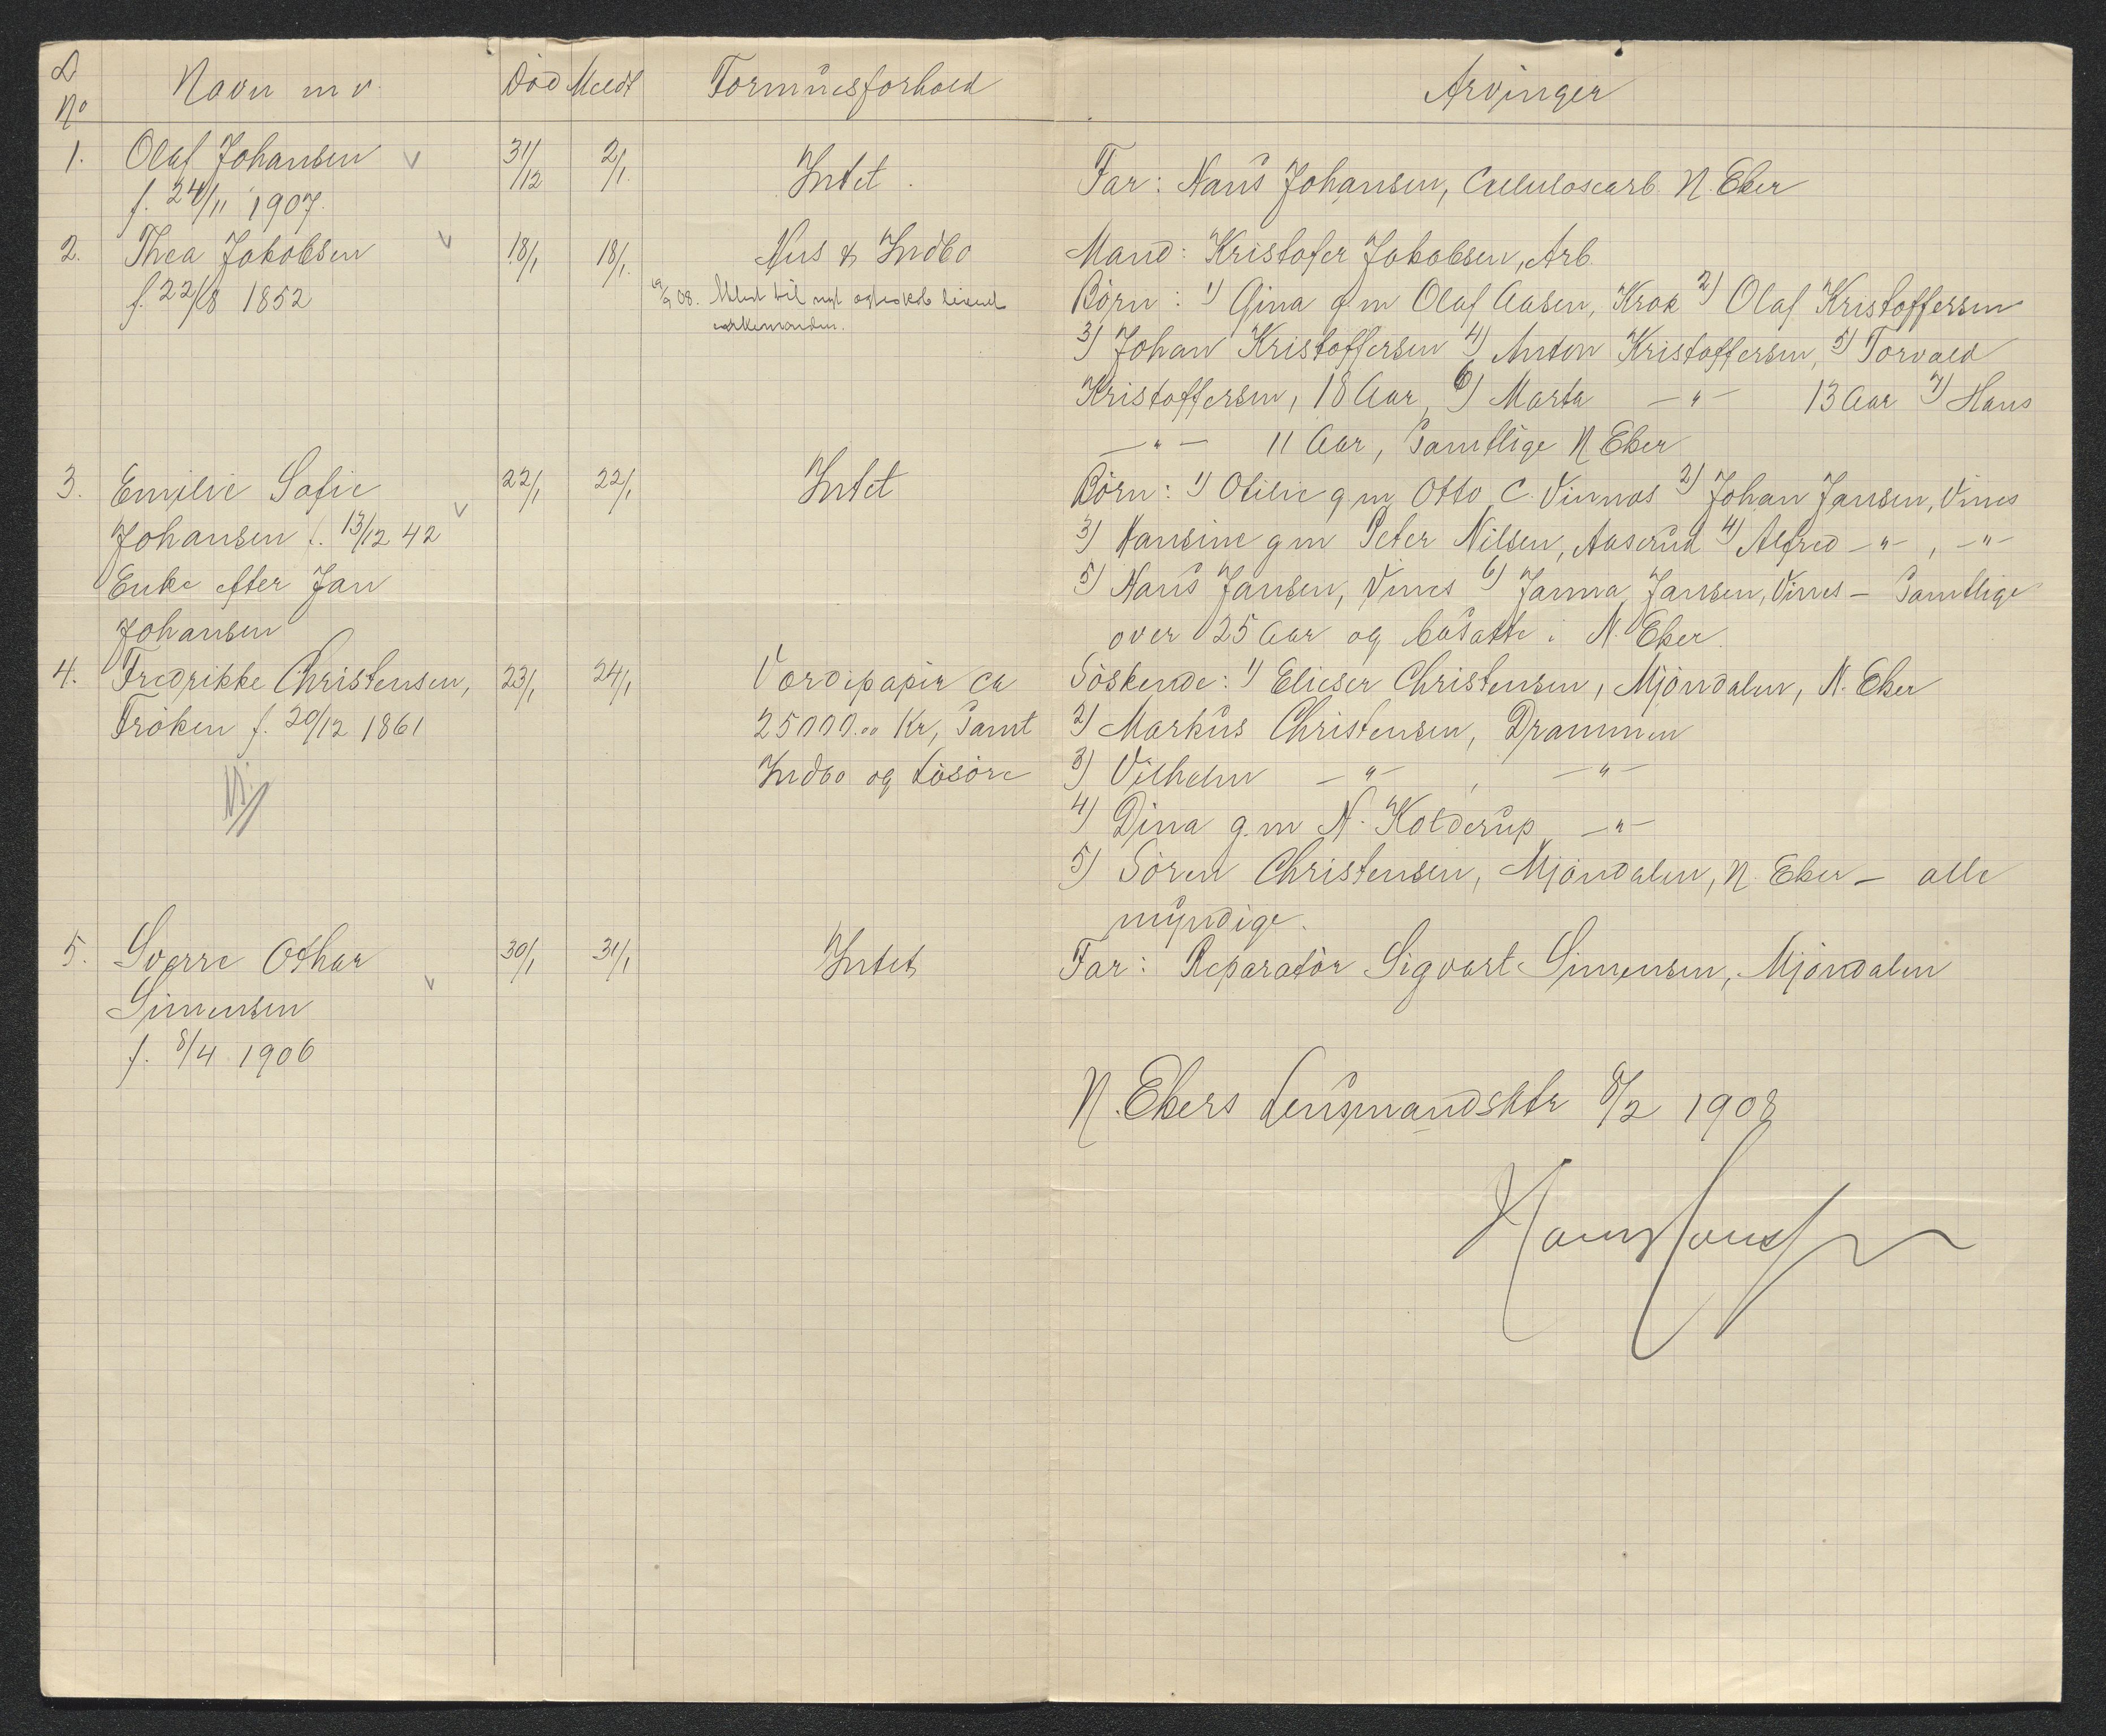 L No Navn m v. Död Meldt Formuesforhold Arvinger
1. Olaf Johansen v 31/12 2/1. Intet. Far: Hans Johansen, Cellulosearb. N. Eker
f. 24/11 1907.
2. Thea Jakobsen v 18/1 18/1. Hus & Indbo Mand: Kristofer Jakobsen, Arb.
f. 22/8 1852 08. Meldt til
enkemanden.
Börn: 1) Gina g m Olaf Aasen, Krok 2) Olaf Kristoffersen
3) Johan Kristoffersen 4) Anton Kristoffersen, 5) Torvald
Kristoffersen, 18 Aar, 6) Marta —"— 13 Aar 7) Hans
—"— 11 Aar, Samtlige N Eker
3. Emilie Sofie v 22/1 22/1 Intet Börn: 1) Otilie g m Otto C. Vinnæs 2) Johan Jansen, Vines
Johansen f. 13/12 42 3) Hansine g m Peter Nilsen, Aaserud 4) Alfred —"—, —"—
Enke efter Jan 5) Hans Jansen, Vines 6) Janna Jansen, Vines — Samtlige
Johansen over 25 Aar og bosatte i N. Eker.
4. Fredrikke Christensen, 23/1 24/1 Værdipapir ca Söskende: 1) Elieser Christensen, Mjöndalen, N. Eker
Fröken f. 20/12 1861 25000.00 Kr, samt 2) Markus Christensen, Drammen
Indbo og Lösöre 3) Vilhelm —"—, —"—
4) Dina g. m N. Kolderup —"—
5) Sören Christensen, Mjöndalen, N. Eker — alle
myndige.
5. Sverre Othar v 30/1 31/1 Intet Far: Reparatör Sigvart Simensen, Mjöndalen
Simensen
f. 8/4 1906
N. Ekers Lensmandsktr 8/2 1908